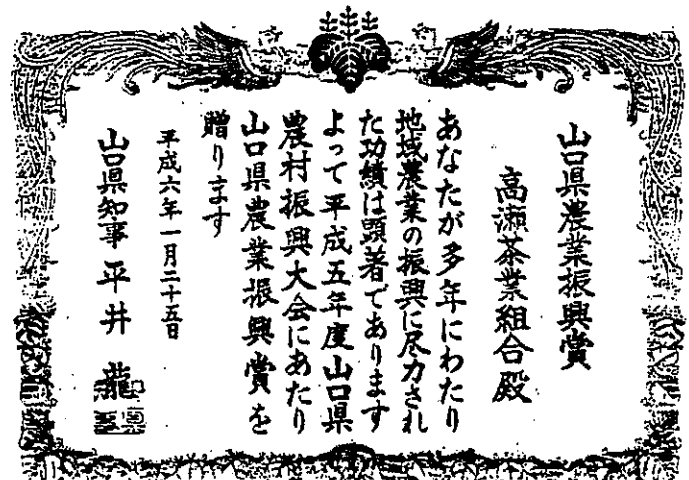 山口県農業振興賞
高瀬茶業組合殿
あなたが多年にわたり
地域農業の振興に尽力され
た功績は顕著であります
よって平成五年度山口県
農村振興大会にあたり
山口県農業振興賞を
贈ります
平成六年一月二十五日
山口県知事 平井 龍